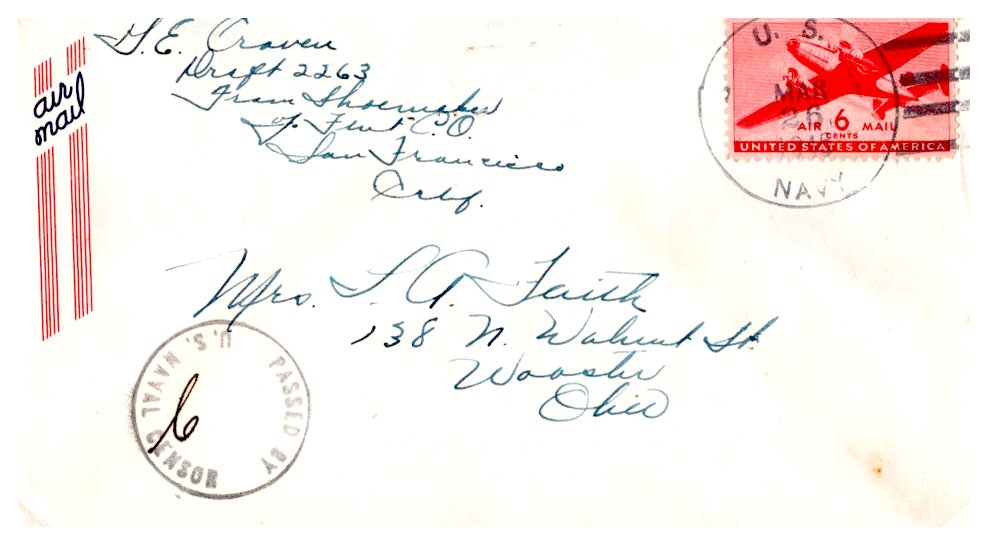 air
mail
G.E. Craven
Draft 2263
From Shoemaker
c/o Fleet P.O.
San Francisco
Calif.
U. S.
MAR
26
NAVY
AIR 6 MAIL
CENTS
UNITED STATES OF AMERICA
Mrs. S. A. Faith
138 N. Walnut St.
Wooster
Ohio
PASSED BY
U.S. NAVAL CENSOR